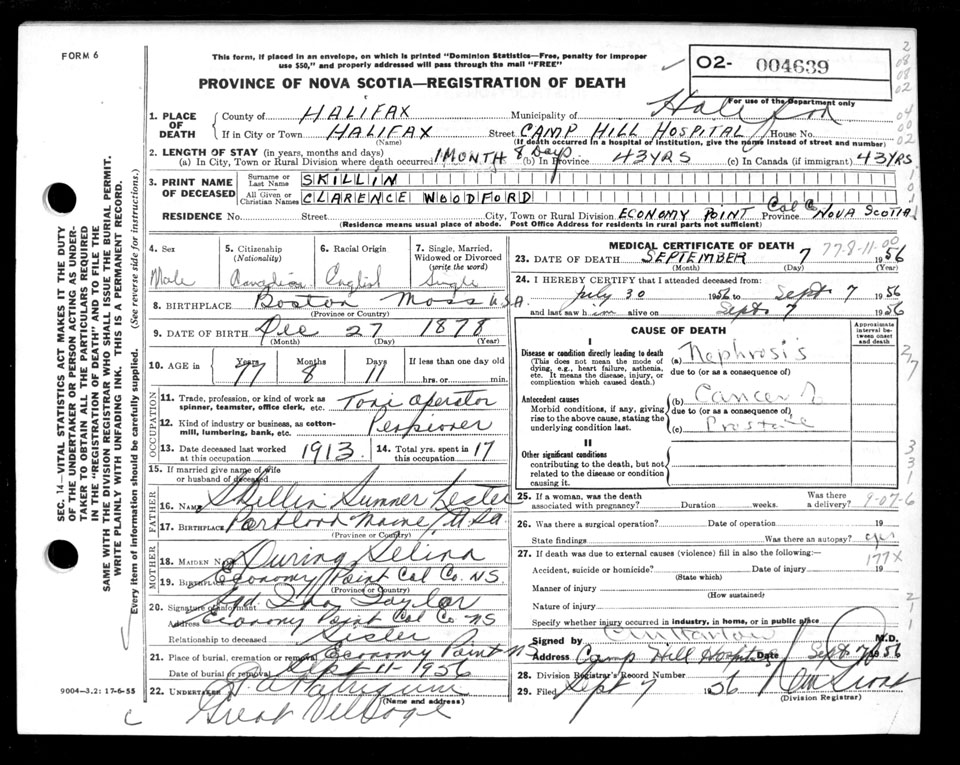 FORM 6
This form, if placed in an envelope, on which is printed "Dominion Statistics—Free, penalty for improper
use $50," and properly addressed will pass through the mail "FREE"
PROVINCE OF NOVA SCOTIA—REGISTRATION OF DEATH
O2- 004639
For use of the Department only
1. PLACE OF DEATH
County of HALIFAX Municipality of
If in City or Town HALIFAX Street CAMP HILL HOSPITAL House No.
(Name) (If death occurred in a hospital or institution, give the name instead of street and number)
2. LENGTH OF STAY (in years, months and days)
(a) In City, Town or Rural Division where death occurred 1 MONTH 8 Days (b) In Province 43 YRS (c) In Canada (if immigrant) 43 YRS
3. PRINT NAME OF DECEASED
Surname or Last Name SKILLIN
All Given or Christian Names CLARENCE WOODFORD
RESIDENCE No. Street City, Town or Rural Division ECONOMY POINT Col Co Province NOVA SCOTIA
(Residence means usual place of abode. Post Office Address for residents in rural parts not sufficient)
4. Sex Male
5. Citizenship (Nationality) Canadian
6. Racial Origin English
7. Single, Married, Widowed or Divorced (write the word) Single
8. BIRTHPLACE Boston Mass U.S.A.
(Province or Country)
9. DATE OF BIRTH Dec 27 1878
(Month) (Day) (Year)
10. AGE in Years 77 Months 8 Days 11 If less than one day old
hrs. or min.
OCCUPATION
11. Trade, profession, or kind of work as
spinner, teamster, office clerk, etc. Taxi operator
12. Kind of industry or business, as cotton-
mill, lumbering, bank, etc.
13. Date deceased last worked
at this occupation 1913
14. Total yrs. spent in
this occupation 17
15. If married give name of wife
or husband of deceased
FATHER
16. NAME Skillin Sumner Lester
17. BIRTHPLACE Portland Maine U.S.A.
(Province or Country)
MOTHER
18. MAIDEN NAME Selina
19. BIRTHPLACE Economy Point Col Co. NS
(Province or Country)
20. Signature of informant Sgd Taylor
Address Economy Point Col Co NS
Relationship to deceased Sister
21. Place of burial, cremation or removal Economy Point NS
Date of burial or removal Sept-11-1956
22. UNDERTAKER
(Name and address)
Great Village
MEDICAL CERTIFICATE OF DEATH
77-8-11-00
23. DATE OF DEATH SEPTEMBER 7 1956
(Month) (Day) (Year)
24. I HEREBY CERTIFY that I attended deceased from:
July 30 1956 to Sept 7 1956
and last saw him alive on Sept 7 1956
CAUSE OF DEATH
Approximate interval between onset and death
I
Disease or condition directly leading to death (a) Nephrosis
(This does not mean the mode of
dying, e.g., heart failure, asthenia,
etc. It means the disease, injury, or
complication which caused death.)
due to (or as a consequence of)
Antecedent causes (b) Cancer of
Morbid conditions, if any, giving
rise to the above cause, stating the
underlying condition last.
due to (or as a consequence of)
(c) Prostate
II
Other significant conditions
contributing to the death, but not
related to the disease or condition
causing it.
25. If a woman, was the death
associated with pregnancy? Duration weeks. Was there
a delivery?
9-07-6
26. Was there a surgical operation? Date of operation 19
State findings Was there an autopsy? yes
27. If death was due to external causes (violence) fill in also the following:—
177X
Accident, suicide or homicide? Date of injury 19
(State which)
Manner of injury
(How sustained)
Nature of injury
Specify whether injury occurred in industry, in home, or in public place
Signed by M.D.
Address Camp Hill Hospital Date Sept 7 1956
28. Division Registrar's Record Number
29. Filed Sept 7 1956
(Division Registrar)
SEC. 14—VITAL STATISTICS ACT MAKES IT THE DUTY
OF THE UNDERTAKER OR PERSON ACTING AS UNDER-
TAKER TO OBTAIN ALL THE PARTICULARS REQUIRED
IN THE "REGISTRATION OF DEATH" AND TO FILE THE
SAME WITH THE DIVISION REGISTRAR WHO SHALL ISSUE THE BURIAL PERMIT.
WRITE PLAINLY WITH UNFADING INK. THIS IS A PERMANENT RECORD.
Every item of information should be carefully supplied. (See reverse side for instructions.)
9004—3.2: 17-6-55